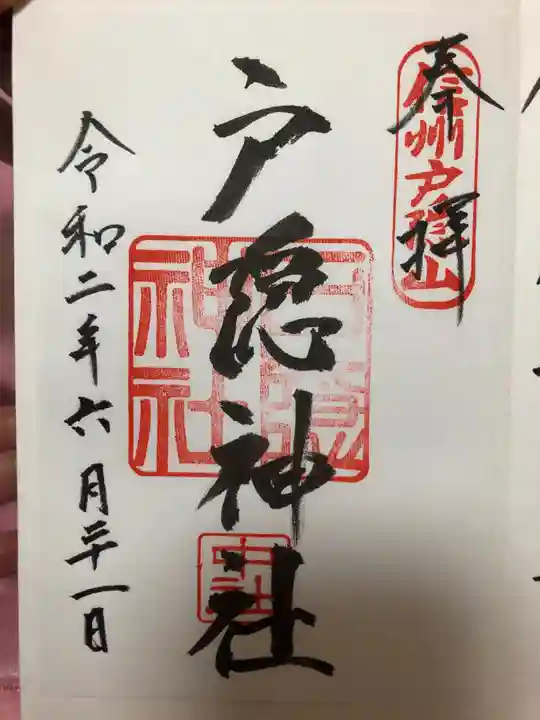 奉拝
信州戸隠山
戸隠神社
戸隠
神社
中社
令和二年六月二十一日